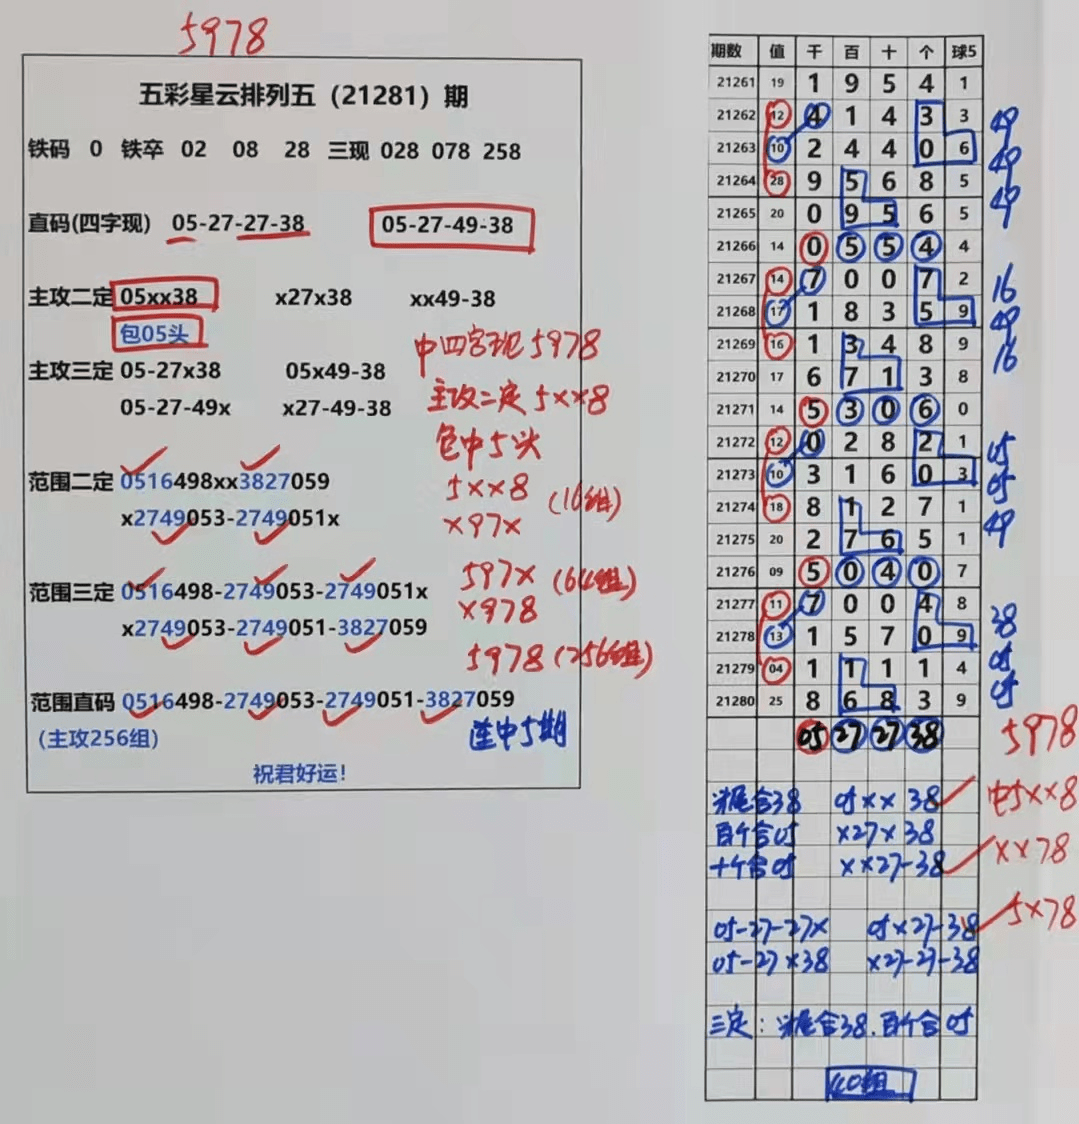 5978
五彩星云排列五（21281）期
铁码 0 铁卒 02 08 28 三现 028 078 258
直码(四字现) 05-27-27-38 05-27-49-38
主攻二定 05xx38 x27x38 xx49-38
包05头
中四字现5978
主攻三定 05-27x38 05x49-38
主攻二定5xx8
05-27-49x x27-49-38
包中5头
范围二定 0516498xx3827059
5xx8 (16组)
x2749053-2749051x
x97x
范围三定 0516498-2749053-2749051x
597x (64组)
x2749053-2749051-3827059
x978
5978 (256组)
范围直码 0516498-2749053-2749051-3827059
(主攻256组)
连中5期
祝君好运!
期数 值 千 百 十 个 球5
21261 19 1 9 5 4 1
21262 12 4 1 4 3 3 49
21263 10 2 4 4 0 6 49
21264 28 9 5 6 8 5 49
21265 20 0 9 5 6 5
21266 14 0 5 5 4 4
21267 14 7 0 0 7 2 16
21268 17 1 8 3 5 9 49
21269 16 1 3 4 8 9 16
21270 17 6 7 1 3 8
21271 14 5 3 0 6 0
21272 12 0 2 8 2 1 05
21273 10 3 1 6 0 3 05
21274 18 8 1 2 7 1 49
21275 20 2 7 6 5 1
21276 09 5 0 4 0 7
21277 11 7 0 0 4 8 38
21278 13 1 5 7 0 9
21279 04 1 1 1 1 4 05
21280 25 8 6 8 3 9 05
05 27 27 38 5978
头尾合38 05xx38 中5xx8
百个合05 x27x38
十个合05 xx27-38 xx78
05-27-27x 05x27-38 5x78
05-27x38 x27-27-38
三定：头尾合38.百个合05
40组